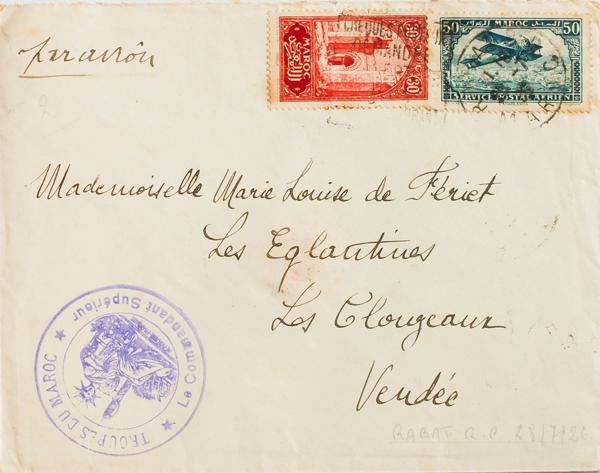 par avion
MAROC
30 30
50 MAROC 50
SERVICE POSTAL AERIEN
Mademoiselle Marie Louise de Fériet
Les Eglantines
Les Clouzeaux
Vendée
TROUPES DU MAROC ★ Le Commandant Supérieur ★
RABAT R.P 28/7/26